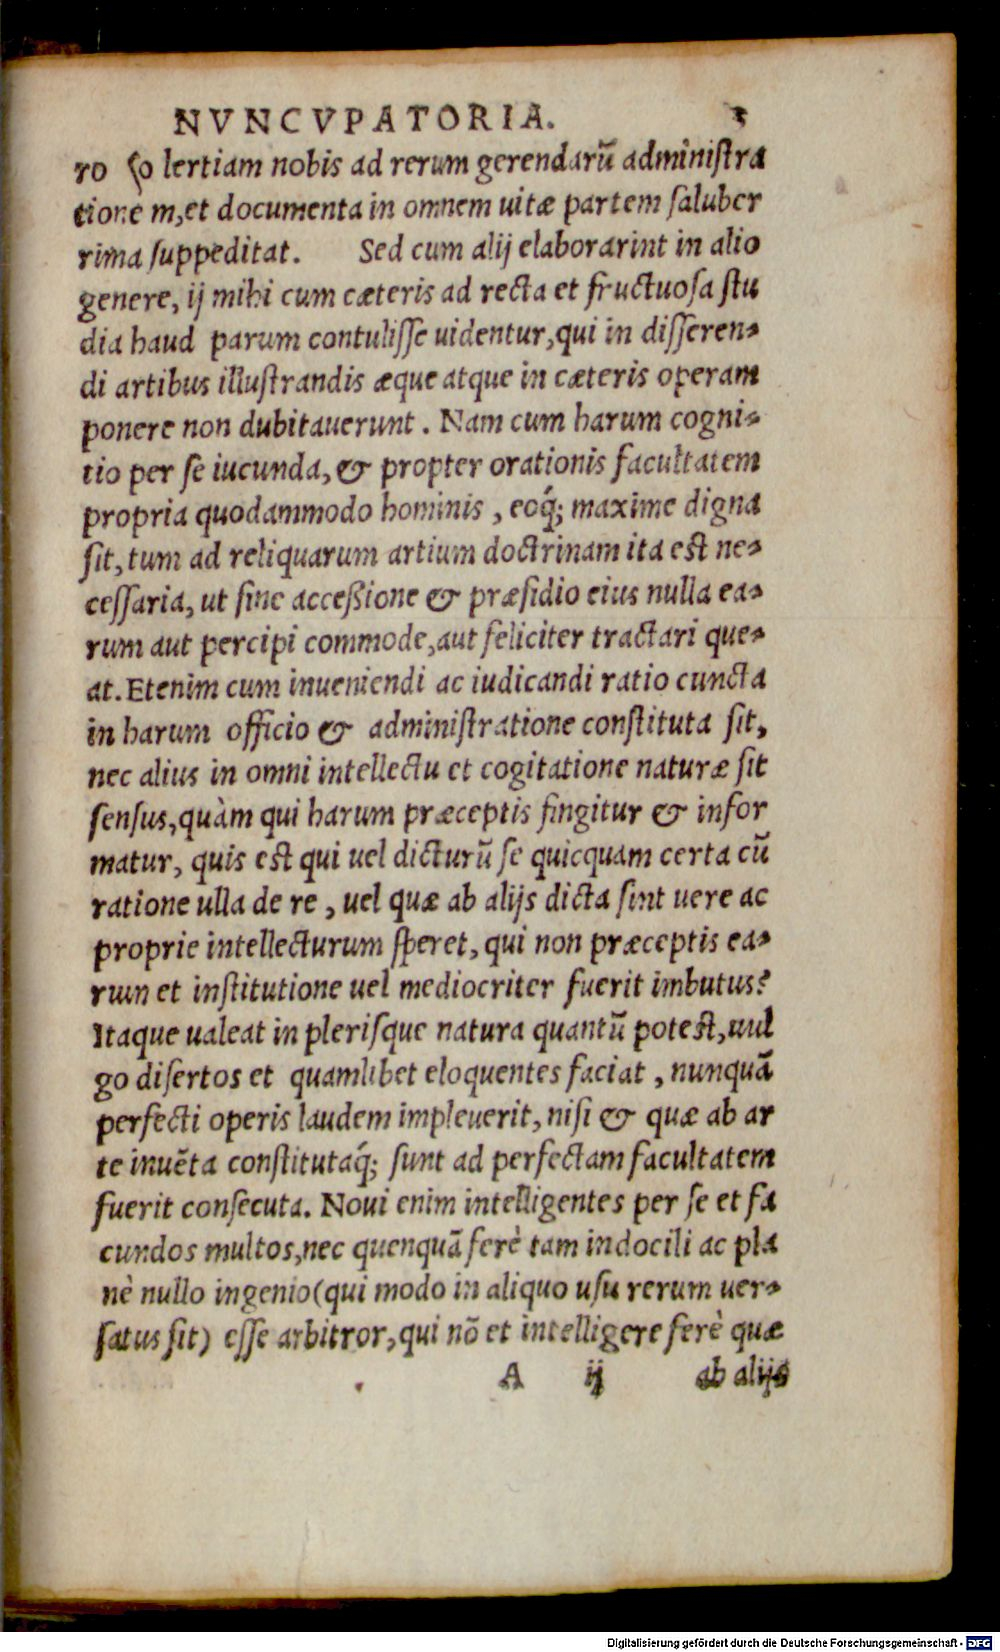 NVNCVPATORIA. 3
ro ſolertiam nobis ad rerum gerendarũ adminiſtra
tione m, et documenta in omnem uitæ partem ſaluber
rima ſuppeditat. Sed cum alij elaborarint in alio
genere, ij mihi cum cæteris ad recta et fructuoſa ſtu
dia haud parum contuliſſe uidentur, qui in diſſeren-
di artibus illuſtrandis æque atque in cæteris operam
ponere non dubitauerunt. Nam cum harum cogni-
tio per ſe iucunda, & propter orationis facultatem
propria quodammodo hominis, eoq́; maxime digna
ſit, tum ad reliquarum artium doctrinam ita eſt ne-
ceſſaria, ut ſine acceßione & præſidio eius nulla ea-
rum aut percipi commode, aut feliciter tractari que-
at. Etenim cum inueniendi ac iudicandi ratio cuncta
in harum officio & adminiſtratione conſtituta ſit,
nec alius in omni intellectu et cogitatione naturæ ſit
ſenſus, quàm qui harum præceptis fingitur & infor
matur, quis eſt qui uel dicturũ ſe quicquam certa cũ
ratione ulla de re, uel quæ ab alijs dicta ſint uere ac
proprie intellecturum ſperet, qui non præceptis ea-
rum et inſtitutione uel mediocriter fuerit imbutus?
Itaque ualeat in pleriſque natura quantũ poteſt, uul
go diſertos et quamlibet eloquentes faciat, nunquã
perfecti operis laudem impleuerit, niſi & quæ ab ar
te inuẽta conſtitutaq́; ſunt ad perfectam facultatem
fuerit conſecuta. Noui enim intelligentes per ſe et fa
cundos multos, nec quenquã ferè tam indocili ac pla
nè nullo ingenio (qui modo in aliquo uſu rerum uer-
ſatus ſit) eſſe arbitror, qui nõ et intelligere ferè quæ
A ij ab alijs
Digitalisierung gefördert durch die Deutsche Forschungsgemeinschaft - DFG